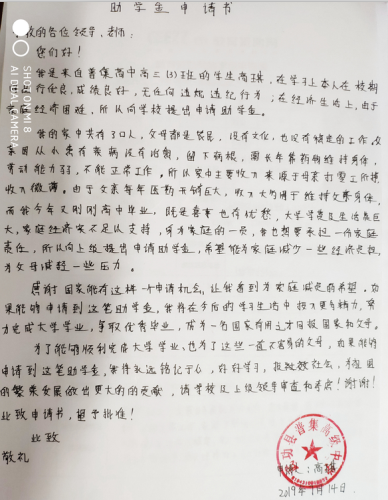 助学金申请书
校的各位领导,老师:
您们好!
我是来自普集高中高三(3)班的学生高琪,在学习上本人在校期
行优良,成绩良好,无任何违规违纪行为;在经济生活上,由于
庭经济困难,所以向学校提出申请助学金。
我的家中共有3口人,父母都是农民,没有文化,也没有稳定的工作,父
因从小患有疾病没有治愈,留下病根,需长年靠药物维持身体,
劳动能力弱,不能正常工作。所以家中主要收入来源于母亲打零工所得
收入微薄。由于父亲每年医药开销巨大,收入大约用于维持父亲身体,
而我今年又刚刚高中毕业,既是喜事也有忧愁,大学学费及生活费巨
大,家庭经济实不足以支持,身为家庭的一员,我也想要承担一份家庭
责任,所以向上级提出申请助学金,希望能为家庭减少一些经济负担,
为父母减轻一些压力。
感谢国家能有这样一个申请机会,让我看到为家庭减负的希望。如
果能够申请到这笔助学金,我将在今后的学习生活中投入更多精力,努
力完成大学学业,争取优秀毕业,成为一名国家有用之才回报国家和父母。
为了能够顺利完成大学学业,也为了这些一直不容易的父母,如果能够
申请到这笔助学金,我将永远铭记于心,好好学习,报效社会,为祖国
的繁荣发展做出更大的的贡献,请学校及上级领导审查和考虑!谢谢!
此致申请书,望予批准!
此致
敬礼
武功县普集高级中学
申请人:高琪
2019年1月14日.
SHOT ON MI 8
AI DUAL CAMERA